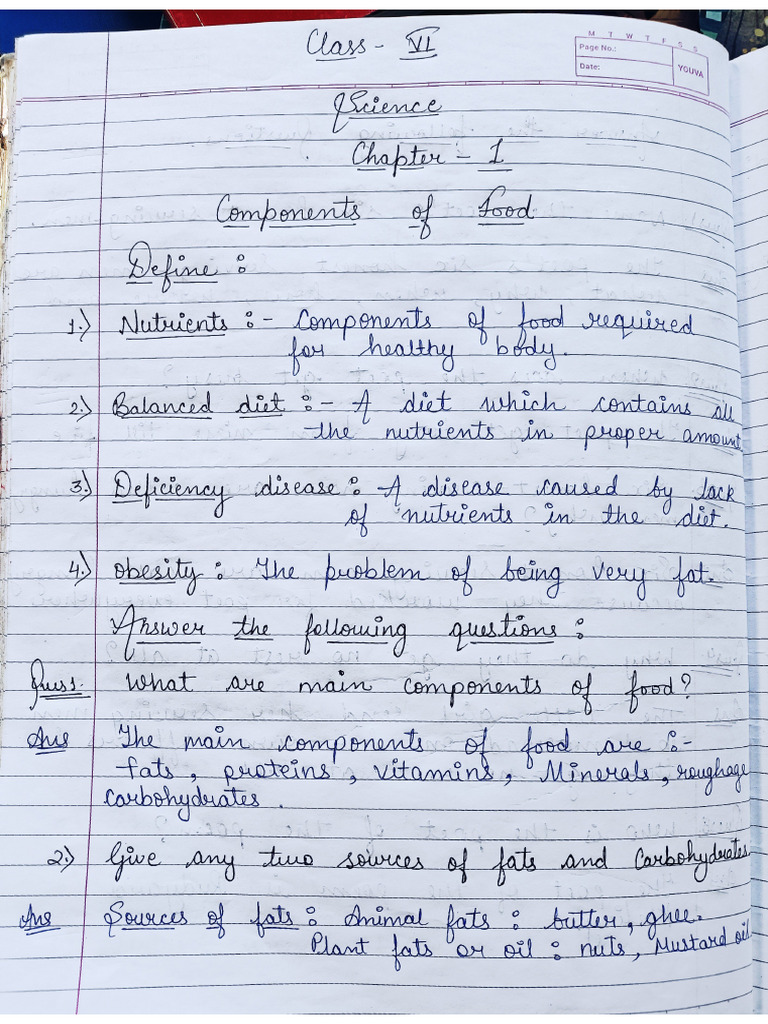 Class - VI
M T W T F S S
Page No.:
Date:
YOUVA
Science
Chapter - 1
Components of Food
Define :
1.) Nutrients :- Components of food required
for healthy body.
2.) Balanced diet :- A diet which contains all
the nutrients in proper amount.
3.) Deficiency disease : A disease caused by lack
of nutrients in the diet.
4.) Obesity : The problem of being very fat.
Answer the following questions :
Ques 1. What are main components of food?
Ans The main components of food are :-
fats, proteins, vitamins, Minerals, roughage
carbohydrates.
2.) Give any two sources of fats and Carbohydrates
Ans Sources of fats : Animal fats : butter, ghee.
Plant fats or oil : nuts, Mustard oil